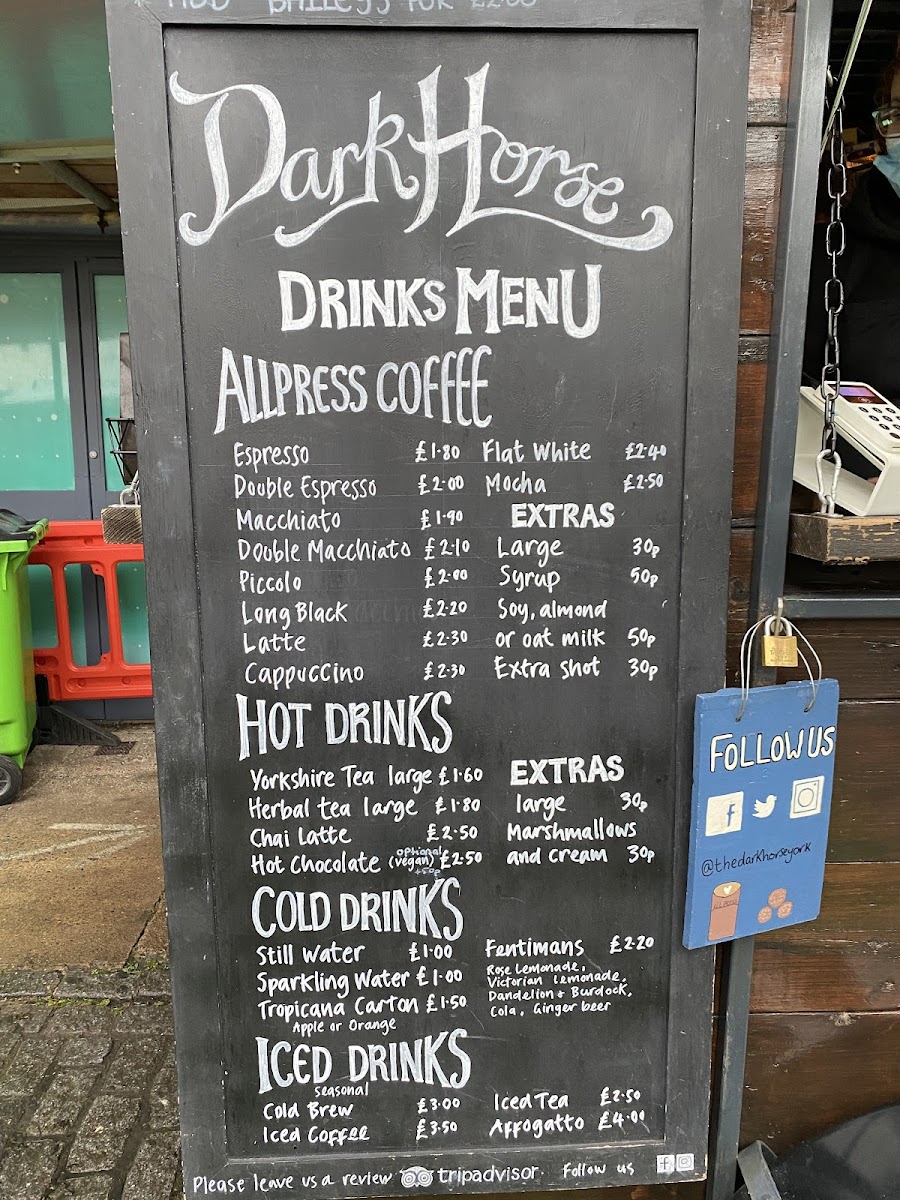 ADD BAILEYS FOR £2.00
Dark Horse
DRINKS MENU
ALLPRESS COFFEE
Espresso £1.80
Double Espresso £2.00
Macchiato £1.90
Double Macchiato £2.10
Piccolo £2.00
Long Black £2.20
Latte £2.30
Cappuccino £2.30
Flat White £2.40
Mocha £2.50
EXTRAS
Large 30p
Syrup 50p
Soy, almond
or oat milk 50p
Extra shot 30p
HOT DRINKS
Yorkshire Tea large £1.60
Herbal tea large £1.80
Chai Latte £2.50
optional
Hot Chocolate (vegan) £2.50
+50p
EXTRAS
large 30p
Marshmallows
and cream 30p
COLD DRINKS
Still Water £1.00
Sparkling Water £1.00
Tropicana Carton £1.50
Apple or Orange
Fentimans £2.20
Rose Lemonade,
Victorian Lemonade,
Dandelion & Burdock,
Cola, Ginger beer
ICED DRINKS
seasonal
Cold Brew £3.00
Iced Coffee £3.50
Iced Tea £2.50
Affogatto £4.00
Please leave us a review tripadvisor Follow us
FOLLOW US
@thedarkhorseyork